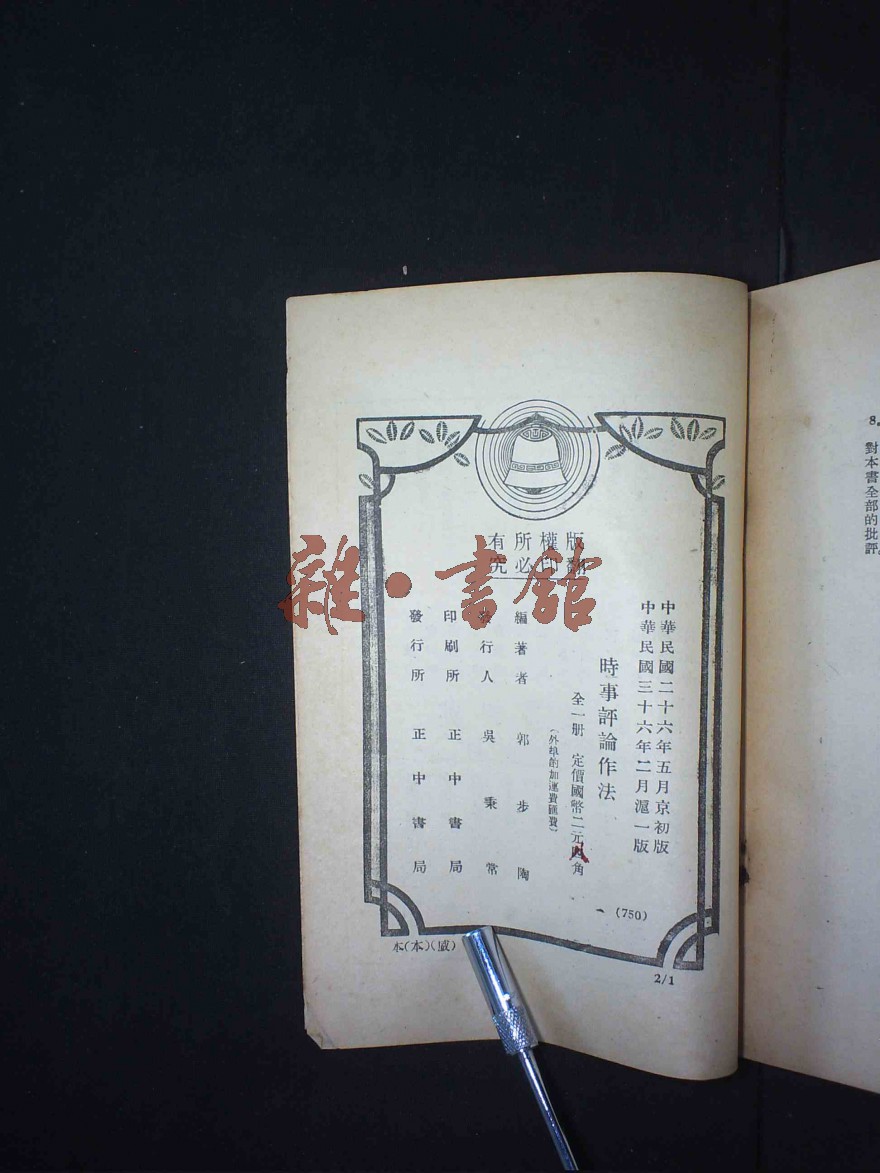 8. 對本書全部的批評。
版權所有
翻印必究
中華民國二十六年五月京初版
中華民國三十六年二月滬一版
時事評論作法
全一册 定價國幣二元四角
(外埠酌加運費匯費)
編著者 郭步陶
發行人 吳秉常
印刷所 正中書局
發行所 正中書局
(750)
本(本)(威)
2/1
雜·書館